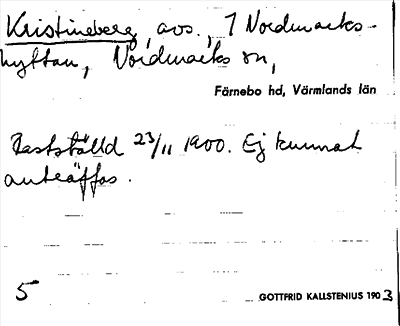 Kristineberg, avs., 1 Nordmarks-
hyttan, Nordmarks sn,
Färnebo hd, Värmlands län
Fastställd 23/11 1900. Ej kunnat
anträffas.
5
GOTTFRID KALLSTENIUS 1903